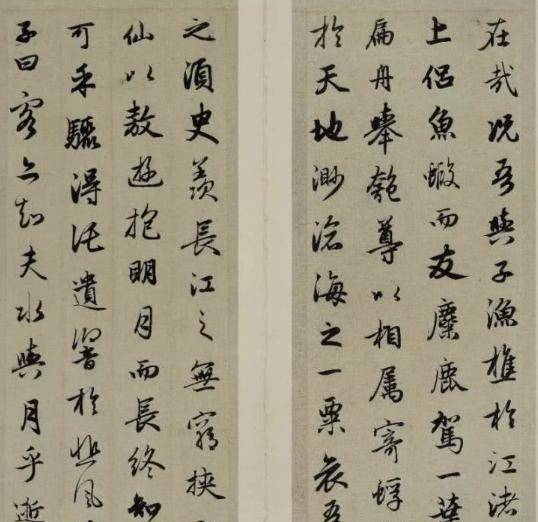 在哉況吾與子漁樵於江渚
上侶魚蝦而友麋鹿駕一葉
扁舟舉匏尊以相屬寄蜉
於天地渺滄海之一粟哀吾
之須臾羨長江之無窮挾
仙以敖遊抱明月而長終知
可乎驟得託遺響於悲風
子曰客亦知夫水與月乎逝